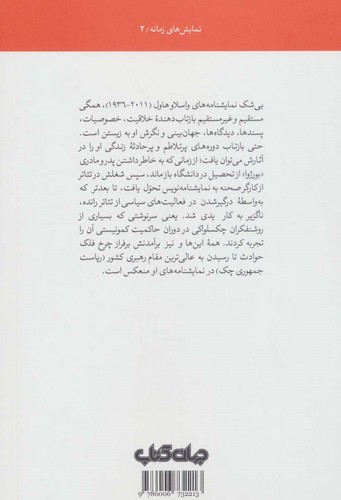 نمایش‌های زمانه/۲
بی‌شک نمایشنامه‌های واسلاو هاول (۲۰۱۱-۱۹۳۶)، همگی
مستقیم و غیرمستقیم بازتاب‌دهندهٔ خلاقیت، خصوصیات،
پسندها، دیدگاه‌ها، جهان‌بینی و نگرش او به زیستن است.
حتی بازتاب دوره‌های پرتلاطم و پرحادثهٔ زندگی او را در
آثارش می‌توان یافت؛ از زمانی که به خاطر داشتن پدر و مادری
«بورژوا» از تحصیل در دانشگاه بازماند، سپس شغلش در تئاتر
از کارگر صحنه به نمایشنامه‌نویس تحوّل یافت، تا بعدتر که
به‌واسطهٔ درگیر‌شدن در فعالیت‌های سیاسی از تئاتر رانده،
ناگزیر به کار یدی شد. یعنی سرنوشتی که بسیاری از
روشنفکران چکسلواکی در دوران حاکمیت کمونیستی آن را
تجربه کردند. همهٔ این‌ها و نیز برآمدنش برفراز چرخ فلک
حوادث تا رسیدن به عالی‌ترین مقام رهبری کشور (ریاست
جمهوری چک) در نمایشنامه‌های او منعکس است.
جهان کتاب
9 786006 732213